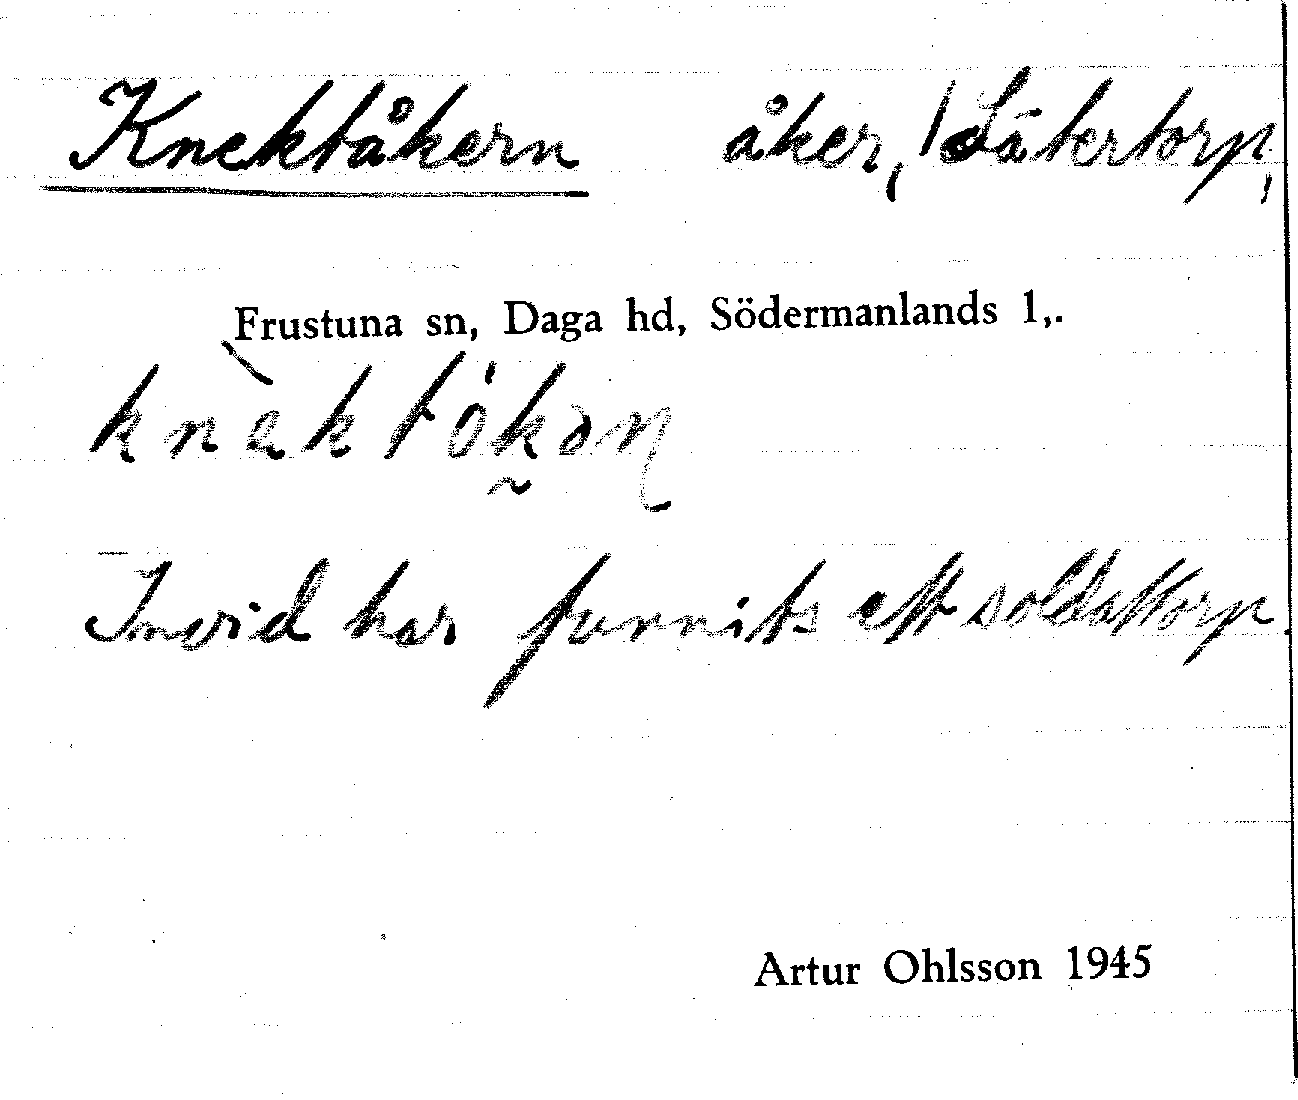 Knektåkern åker, Sätertorp,
Frustuna sn, Daga hd, Södermanlands l,.
knàktókan
Invid har funnits ett soldattorp.
Artur Ohlsson 1945